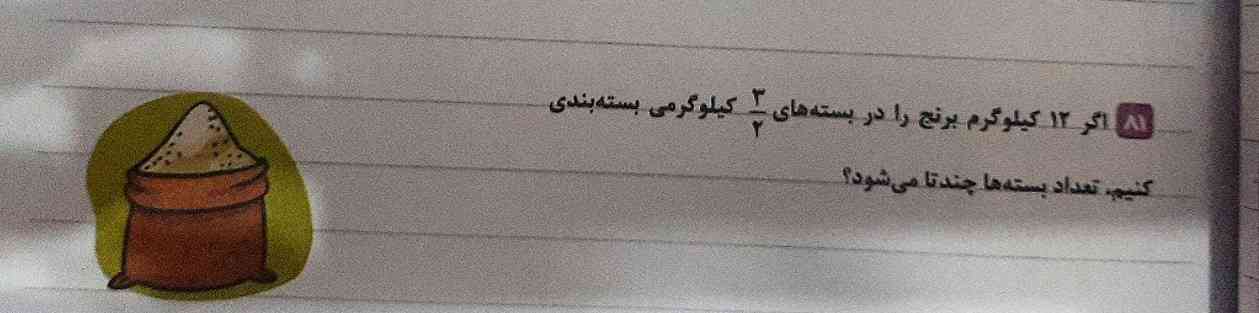 ۸۱ اگر ۱۲ کیلوگرم برنج را در بسته‌های ۳/۲ کیلوگرمی بسته‌بندی
کنیم، تعداد بسته‌ها چندتا می‌شود؟